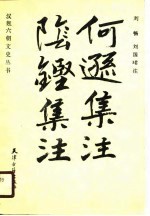 刘畅 刘国珺注
何遜集注
陰鏗集注
汉魏六朝文史丛书
天津古